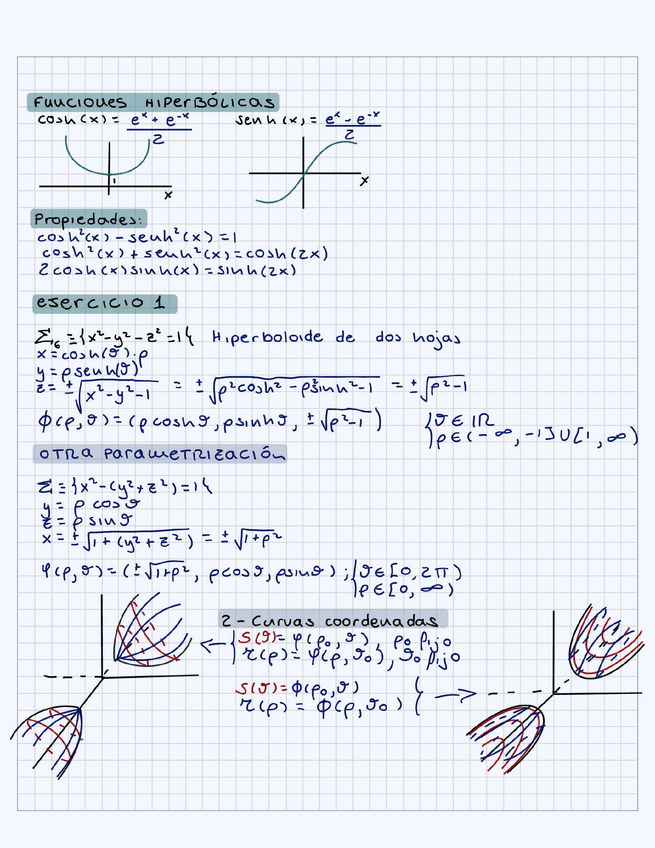 Funciones Hiperbólicas
cosh(x) = (e^x + e^-x)/2    senh(x) = (e^x - e^-x)/2
1
x    x
Propiedades:
cosh²(x) - senh²(x) = 1
cosh²(x) + senh²(x) = cosh(2x)
2cosh(x)sinh(x) = sinh(2x)
ejercicio 1
Σ₆ ≡ {x²-y²-z²=1}  Hiperboloide de dos hojas
x = cosh(ϑ)·ρ
y = ρ senh(ϑ)
z = ±√(x²-y²-1) = ±√(ρ²cosh² - ρ²sinh² - 1) = ±√(ρ²-1)
ϕ(ρ,ϑ) = (ρcoshϑ, ρsinhϑ, ±√(ρ²-1))  { ϑ ∈ ℝ
ρ ∈ (-∞, -1] ∪ [1, ∞)
otra parametrización
Σ ≡ {x²-(y²+z²)=1}
y = ρ cosϑ
z = ρ sinϑ
x = ±√(1+(y²+z²)) = ±√(1+ρ²)
φ(ρ,ϑ) = (±√(1+ρ²), ρcosϑ, ρsinϑ) ; { ϑ ∈ [0, 2π)
ρ ∈ [0, ∞)
2- Curvas coordenadas
← { s(ϑ) = φ(ρ₀,ϑ), ρ₀ fijo
r(ρ) = φ(ρ,ϑ₀), ϑ₀ fijo
s(ϑ) = ϕ(ρ₀,ϑ)
r(ρ) = ϕ(ρ,ϑ₀) { →